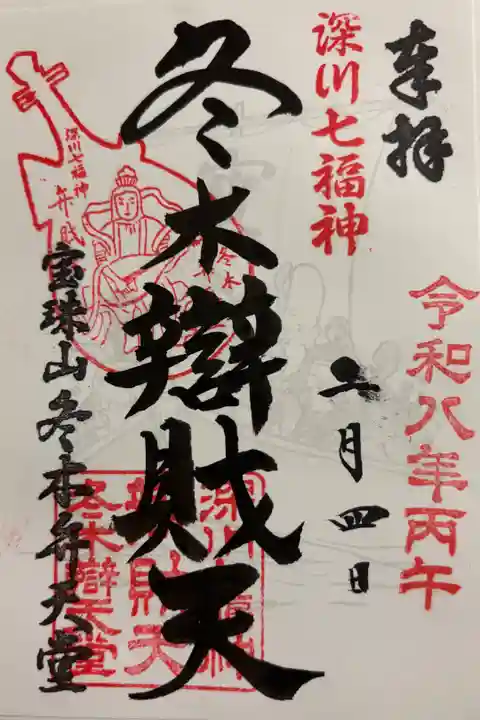 奉拝
深川七福神
令和八年丙午
二月四日
冬木辯財天
宝珠山冬木弁天堂
深川七福神
弁財
冬木
深川七福神
辯財天
冬木辯天堂